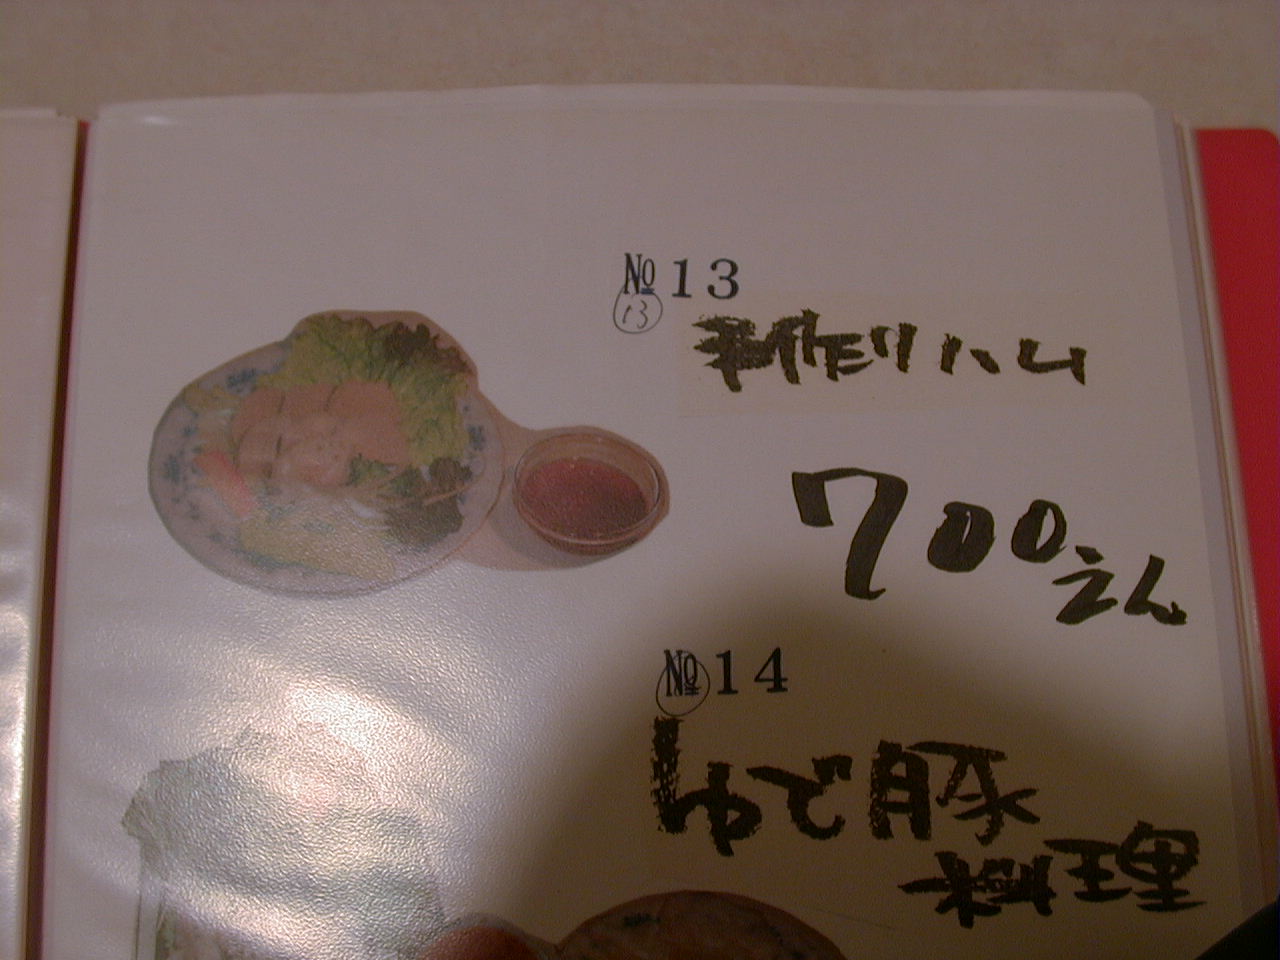 №13
13
作りハム
700えん
№14
ゆで豚
料理